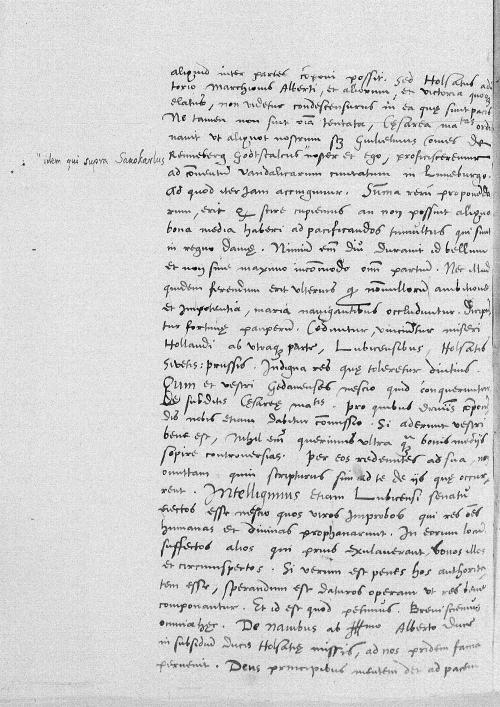 aliquid inter partes cōponi possit. Sed Holsatus adiu
torio Marchionis Alberti, et aliorum, et victoria quoq3
elatus, non videtur condescensurus in ea quę sunt pacis
Ne tamen non sint oīa tentata, Cęsarea ma tas ordi
navit ut aliquot nostrum sz Guilielmus comes de
"idem qui supra Saxokarlus
Renneberg Godtscalcus noster et ego, proficisceremur
ad conventū Vandalicarum civitatum in Luneburgo.
Ad quod iter jam accingimur. Sūma rerū proponēda
rum, erit q scire cupiemus an non possint aliquo
bona media haberi ad pacificandos tumultus qui sunt
in regno danię. Nimiū em̄ diu duravit id bellum
et non sine maximo incōmodo omniū partiū. Nec illud
quidem ferendum erit ulterius q nōnullorū ambitione
et impotentia, maria navigantibus occluduntur. Diripiū
tur fortunę pauperū. Cęduntur, vinciūtur miseri
Hollandi ab utraq3 parte, Lubicensibus, Holsatis
Svetis: prussis. Indigna res quę toleretur diutius.
Cum et vestri Gedanenses nescio quid conquerūtur
de subditis Cęsareę ma tis. pro quibus
dis nobis etiam dabitur cōmissio. Si aderunt vestri
bene est, nihil em̄ querimus ultra q bonis medijs
sopire controversias. Per eos redeuntes ad sua, nō
omittam quin scripturus sim ad te de ijs quę occur
rent. Intelligimus etiam Lubicensi senatu
eiectos esse nescio quos viros improbos qui res oēs
humanas et divinas prophanarunt. In eorum locū
suffectos alios qui prius exulaverant bonos illos
et circumspectos. Si verum est penes hos authorita
tem esse, sperandum est daturos operam ut res bene
componantur. Et id est quod petimus. Brevi sciemus
omnia hęc. De navibus ab Illmo Alberto duce
in subsidiū ducis Holsatię missis, ad nos pridem fama
pervenit. Deus principibus mentem det ad pacem